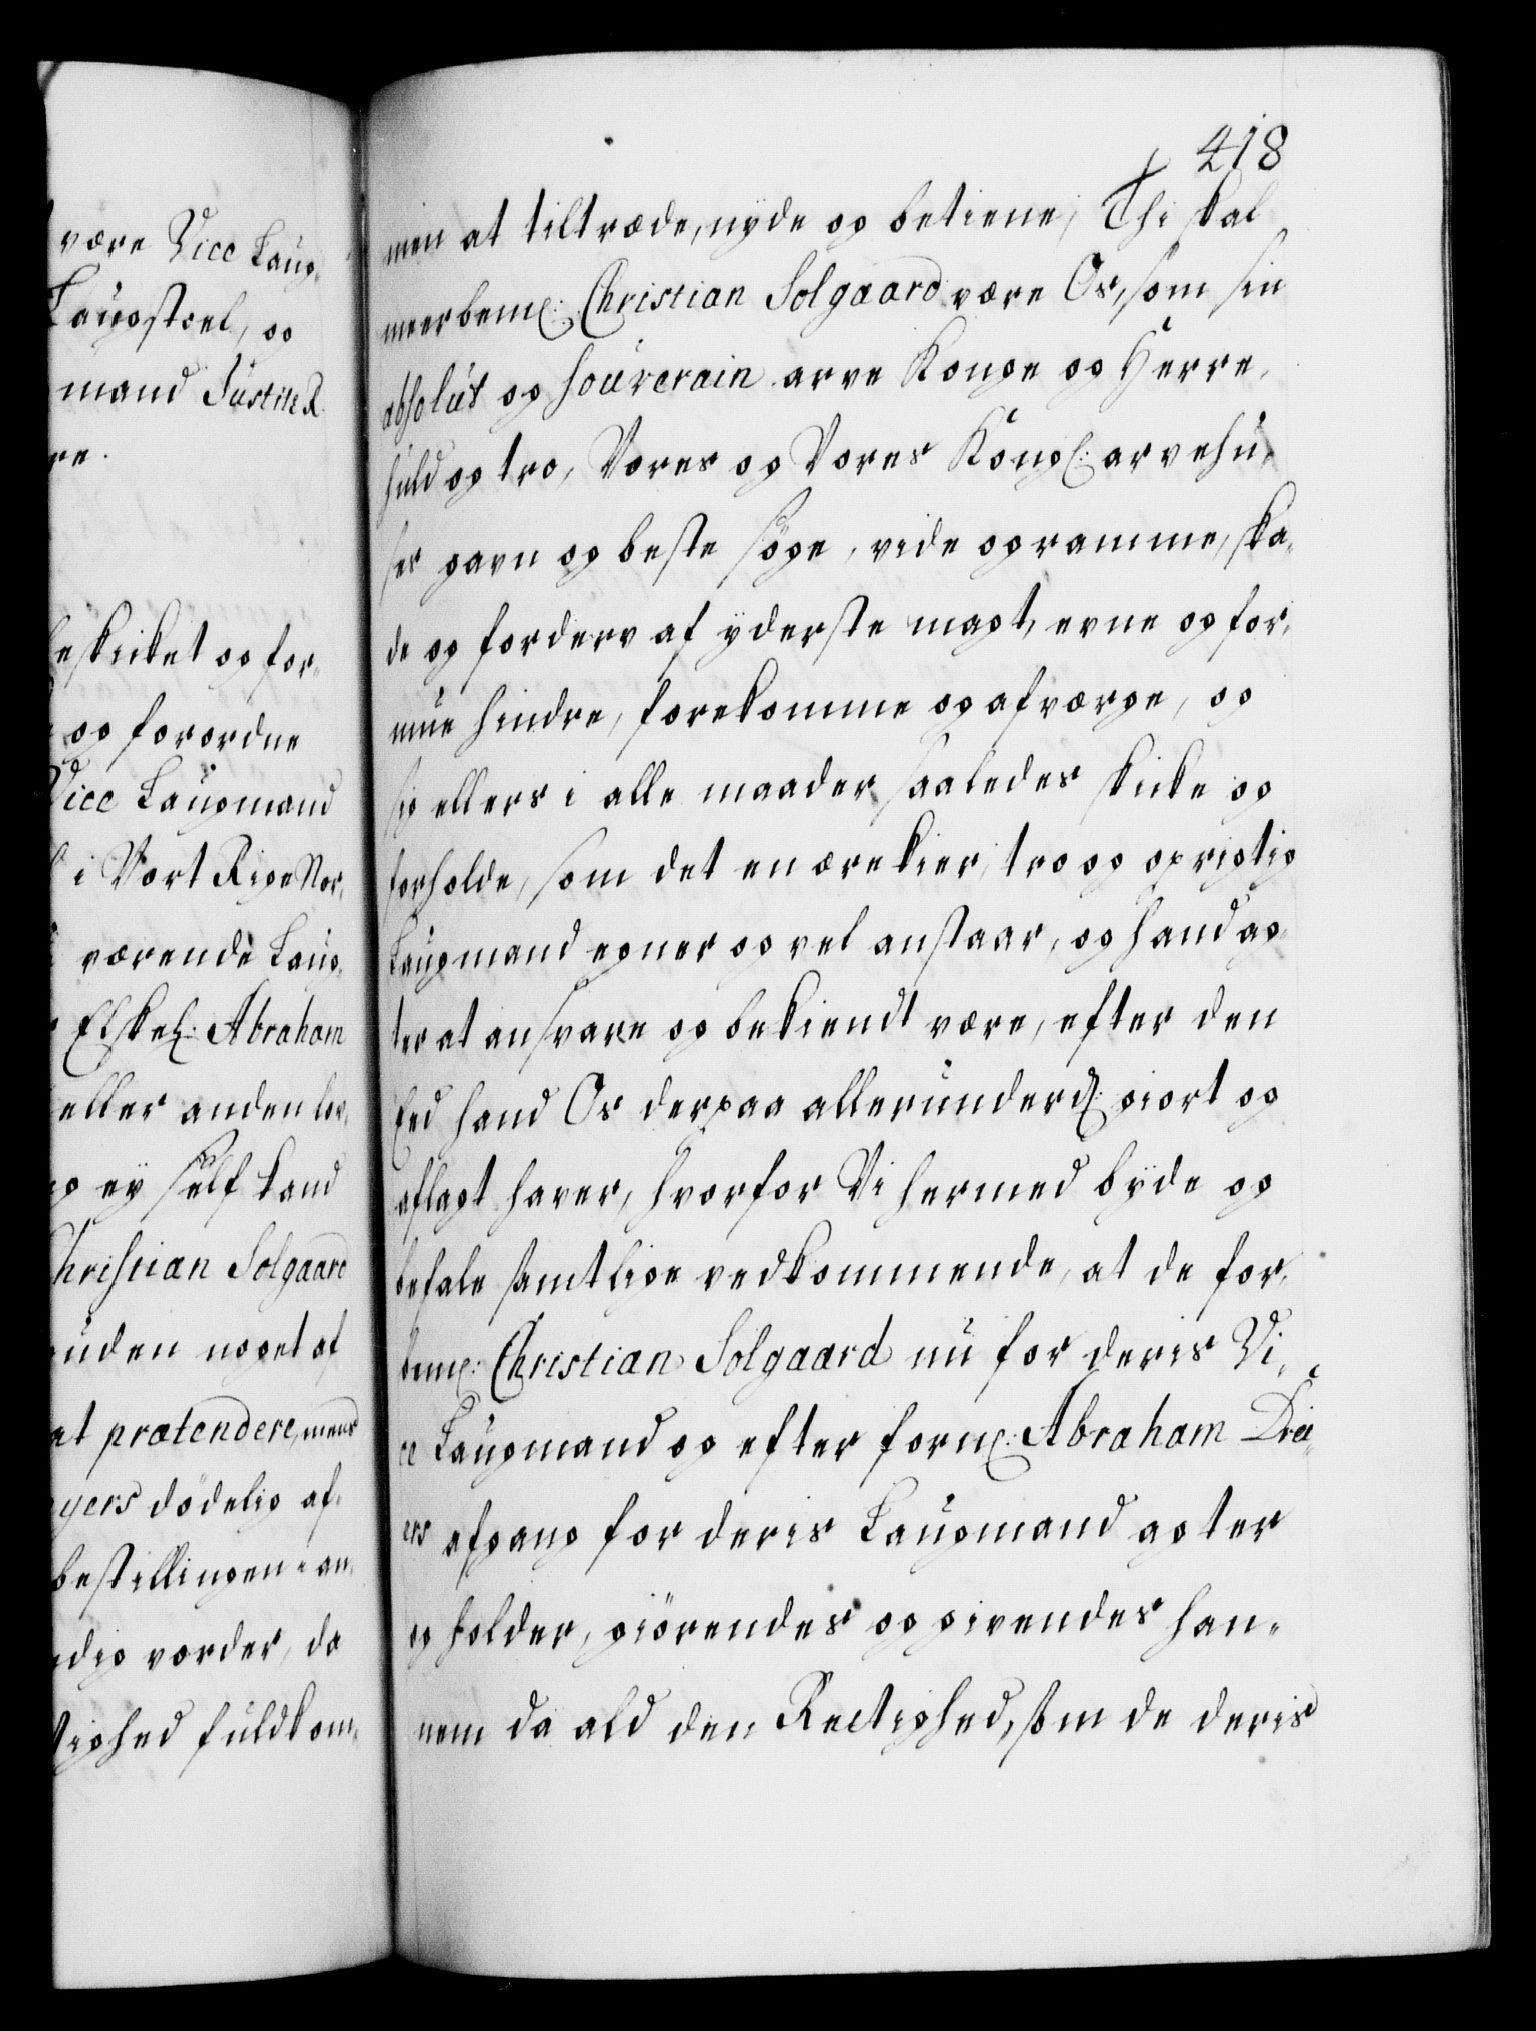 være Vice Laug,
Laugstoel, og
mand Justits R
re.
eskicket og for,
og forordne
Vice Laugmand
i Vort Rige Nor,
værende Laug,
Elskel: Abraham
eller anden lov,
ey self kand
Christian Solgaard
uden noget af
at prætendere, mens
yers dödelig af,
bestillingen i an,
dig vorder, da
tighed fuldkom,
418
men at tiltræde, nyde og betiene, Thi skal
meerbemt: Christian Solgaard være Os, som sin
absolut og souverain arve Konge og Herre,
huld og tro, Vores og Vores Kongl: arvehu,
ses gavn og beste söge, vide og ramme, ska,
de og forderv af yderste magt, evne og for,
mue hindre, forekomme og afværge, og
sig ellers i alle maader saaledes skicke og
forholde, som det en ærekier, tro og oprigtig
Laugmand egner og vel anstaar, og hand ag,
ter at ansvare og bekiendt være, efter den
Eed hand Os derpaa allerunderd: giort og
aflagt haver, hvorfor Vi hermed byde og
befale samtlige vedkommende, at de for,
bemt: Christian Solgaard nu for deris Vi,
ce Laugmand og efter fornt: Abraham Drei,
ers afgang for deris Laugmand agter
og holder, giörendes og givendes han,
nem da ald den Rectighed, som de deris